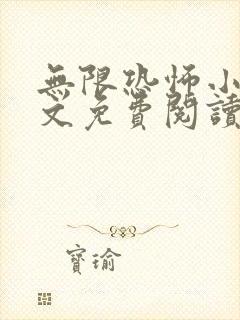 無限恐怖小
文免費閱讀
寶瑜